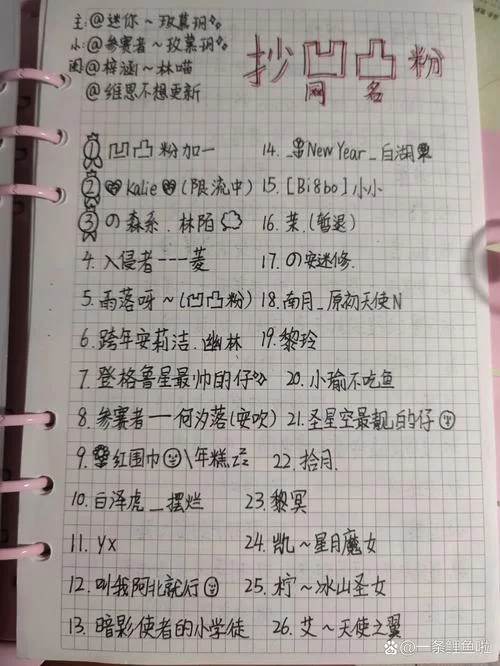 主:@迷你~玫慕玥
小:@参赛者~玫慕玥
团:@梓涵~林喵
@维思不想更新
抄凹凸粉
网名
1 凹凸粉加一
2 Kalie (限流中)
3 の森系.林陌
4. 入侵者---菱
5. 雨落呀~(凹凸粉)
6. 跨年安莉洁.幽林
7. 登格鲁星最帅的仔
8. 参赛者一一何汐落(安吹)
9. 红围巾 \年糕zzz
10. 白泽虎_摆烂
11. yx
12. 叫我阿北就行
13. 暗影使者的小学徒
14. _New Year_白湖
15. [Bi8bo]小小
16. 茉.(暂退)
17. の安迷修.
18. 南月_原初天使N
19. 黎玲
20. 小瑜不吃鱼
21. 圣星空最靓的仔
22. 拾月.
23. 黎冥
24. 凯~星月魔女
25. 柠~冰山圣女
26. 艾~天使之翼
@一条鲤鱼啦